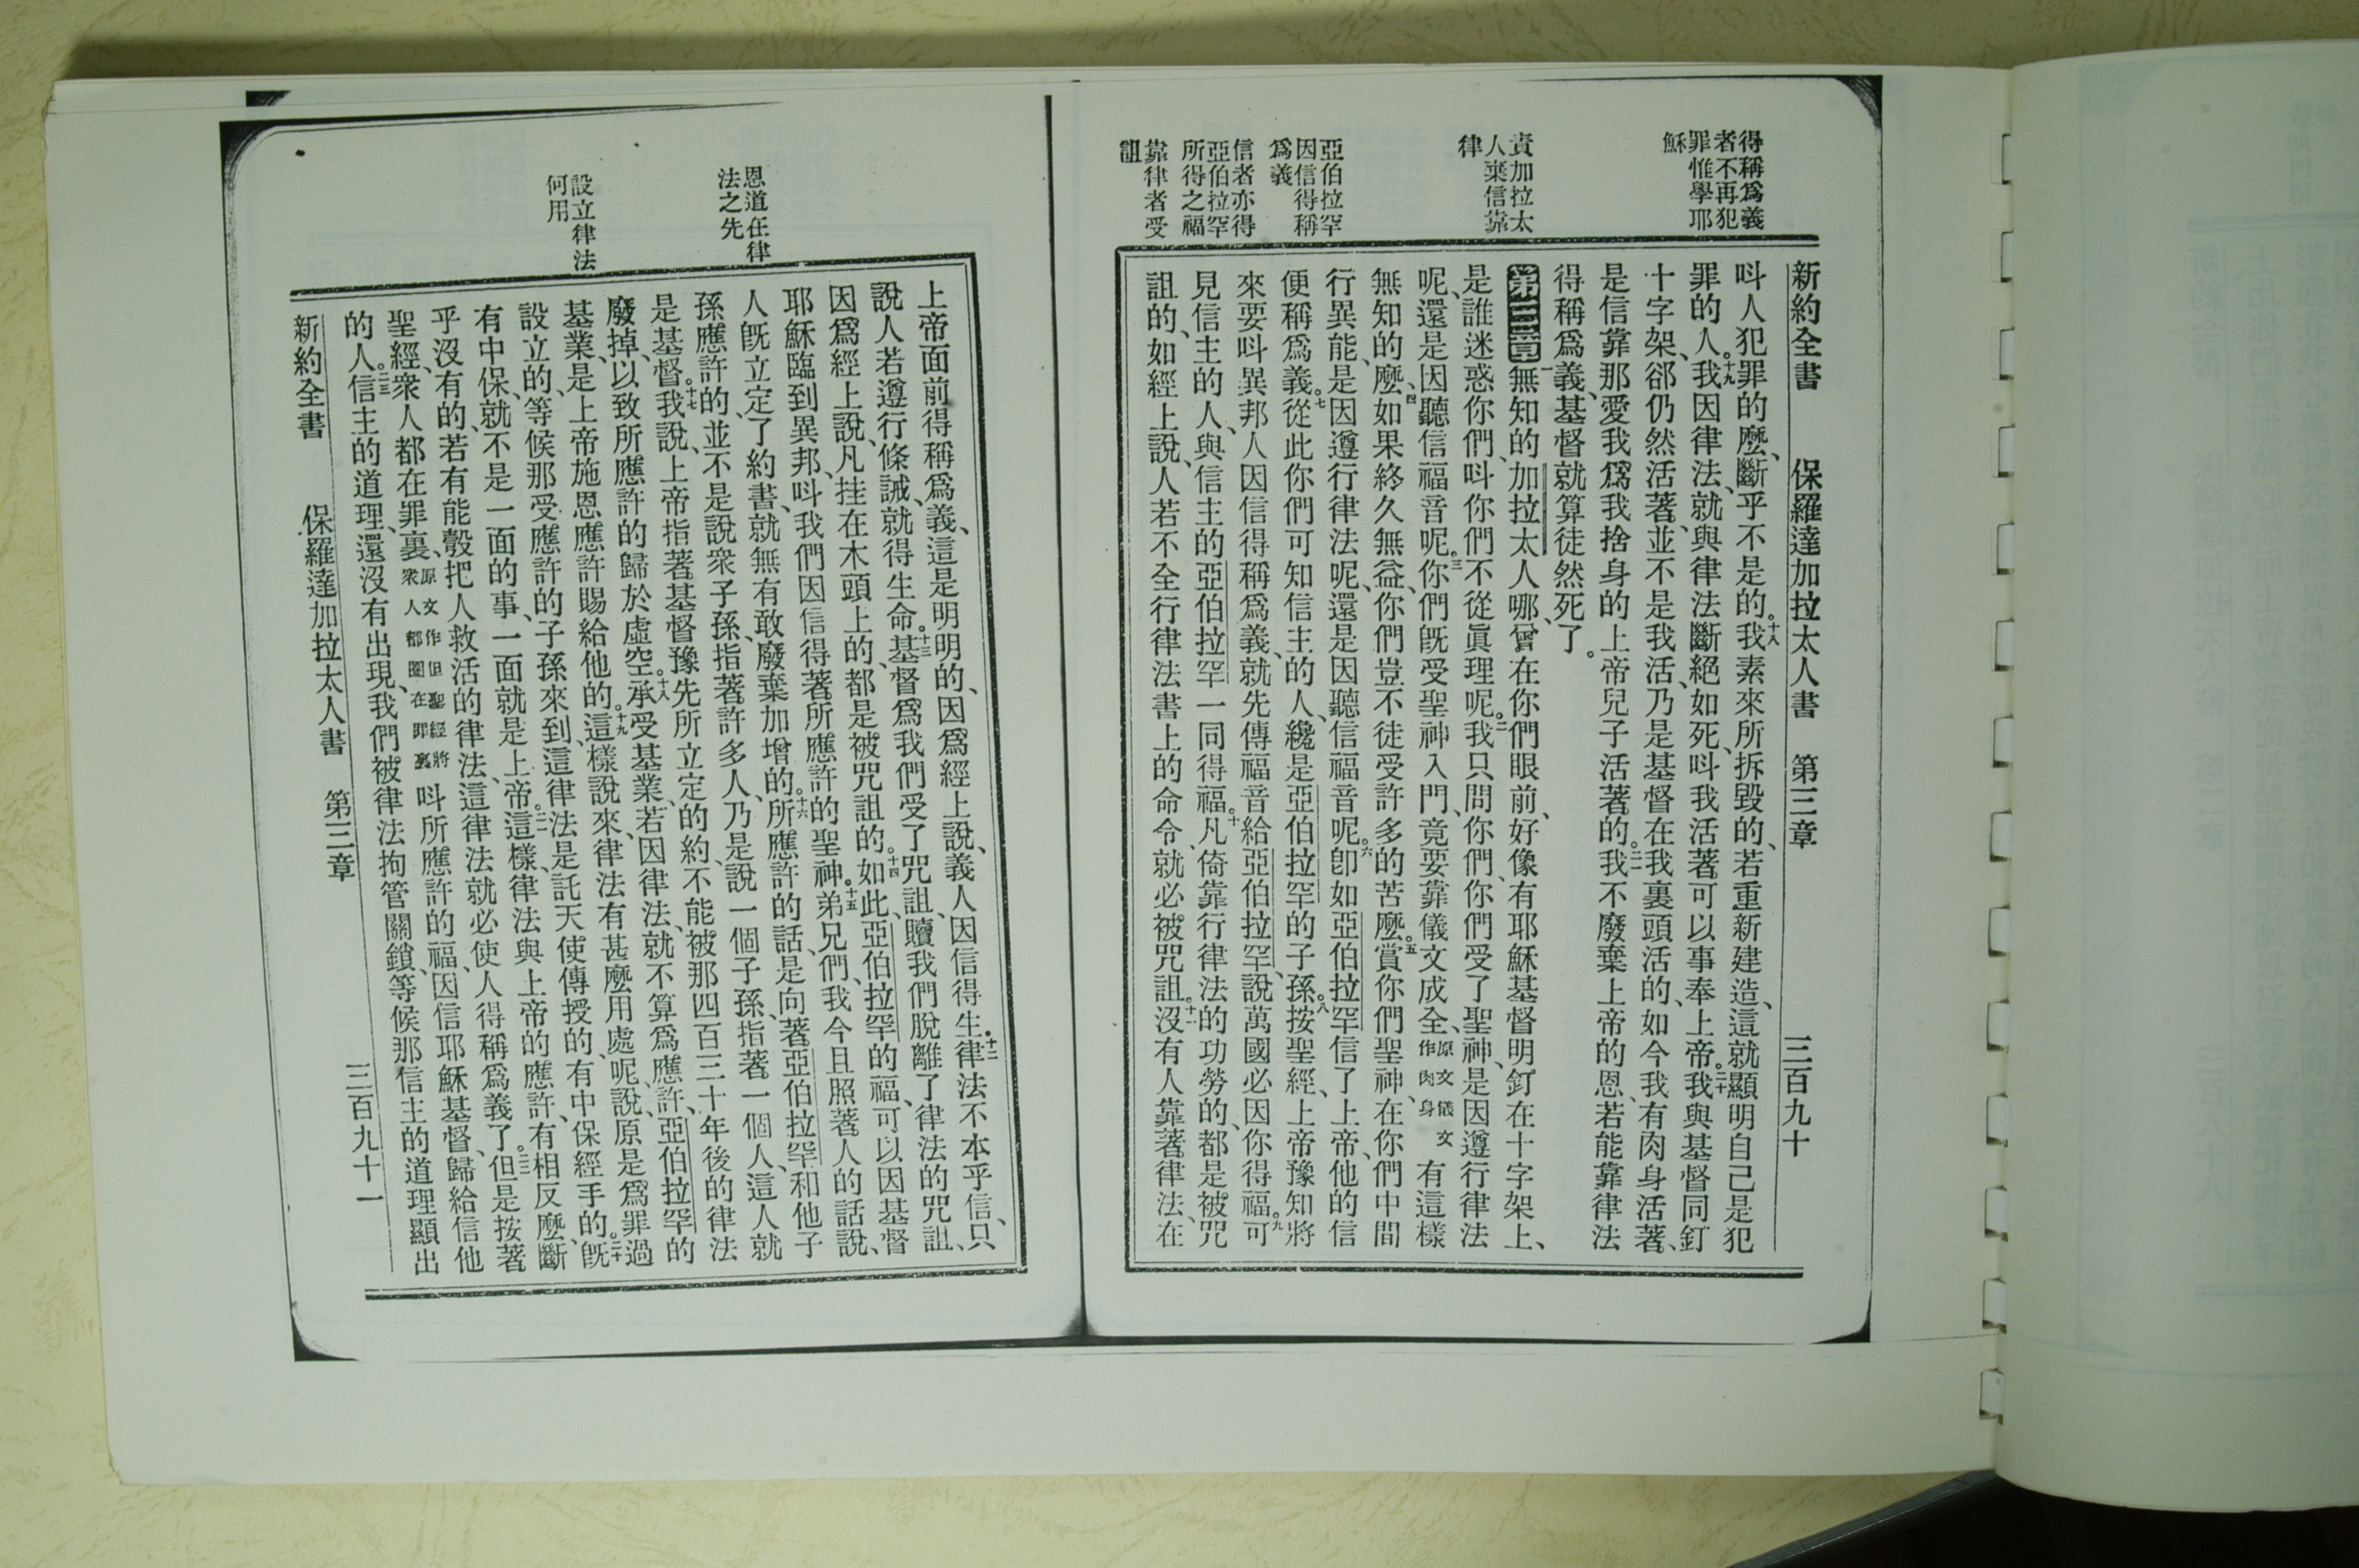 得稱爲義
者不再犯
罪惟學耶
穌
責加拉太
人棄信靠
律
亞伯拉罕
因信得稱
爲義
信者亦得
亞伯拉罕
所得之福
靠律者受
詛
新約全書 保羅達加拉太人書 第三章 三百九十
呌人犯罪的麽、斷乎不是的。十八我素來所拆毀的、若重新建造、這就顯明自己是犯
罪的人。十九我因律法、就與律法斷絕如死、呌我活著可以事奉上帝。二十我與基督同釘
十字架、郤仍然活著、並不是我活、乃是基督在我裏頭活的、如今我有肉身活著、
是信靠那愛我爲我捨身的上帝兒子活著的。二一我不廢棄上帝的恩、若能靠律法
得稱爲義、基督就算徒然死了。
第三章一無知的加拉太人哪、曾在你們眼前、好像有耶穌基督明明釘在十字架上、
是誰迷惑你們、呌你們不從眞理呢。二我只問你們、你們受了聖神、是因遵行律法
呢、還是因聽信福音呢。三你們旣受聖神入門、竟要靠儀文成全、原文儀文作肉身有這樣
無知的麽、四如果終久無益、你們豈不徒受許多的苦麽。五賞你們聖神、在你們中間
行異能、是因遵行律法呢、還是因聽信福音呢。六卽如亞伯拉罕信了上帝、他的信
便稱爲義。七從此你們可知信主的人、纔是亞伯拉罕的子孫。八按聖經、上帝豫知將
來要呌異邦人因信得稱爲義、就先傳福音給亞伯拉罕、說萬國必因你得福。九可
見信主的人、與信主的亞伯拉罕一同得福。十凡倚靠行律法的功勞的、都是被咒
詛的、如經上說、人若不全行律法書上的命令、就必被咒詛。十一沒有人靠著律法、在
恩道在律
法之先
設立律法
何用
上帝面前得稱爲義、這是明明的、因爲經上說、義人因信得生。十二律法不本乎信、只
說人若遵行條誡、就得生命。十三基督爲我們受了咒詛、贖我們脫離了律法的咒詛、
因爲經上說、凡挂在木頭上的、都是被咒詛的。十四如此、亞伯拉罕的福、可以因基督
耶穌臨到異邦、呌我們因信得著所應許的聖神。十五弟兄們、我今且照著人的話說、
人旣立定了約書、就無有敢廢棄加增的。十六所應許的話、是向著亞伯拉罕和他子
孫應許的、並不是說衆子孫、指著許多人、乃是說一個子孫、指著一個人、這人就
是基督。十七我說、上帝指著基督豫先所立定的約、不能被那四百三十年後的律法
廢掉、以致所應許的歸於虛空。十八承受基業、若因律法、就不算爲應許、亞伯拉罕的
基業、是上帝施恩應許賜給他的。十九這樣說來、律法有甚麽用處呢、說、原是爲罪過
設立的、等候那受應許的子孫來到、這律法是託天使傳授的、有中保經手的。二十旣
有中保、就不是一面的事、一面就是上帝。二一這樣、律法與上帝的應許、有相反麽、斷
乎沒有的、若有能彀把人救活的律法、這律法就必使人得稱爲義了。二二但是按著
聖經、衆人都在罪裏、原文作但聖經將衆人都圈在罪裏呌所應許的福、因信耶穌基督、歸給信他
的人。二三信主的道理、還沒有出現、我們被律法拘管關鎖、等候那信主的道理顯出
新約全書 保羅達加拉太人書 第三章 三百九十一